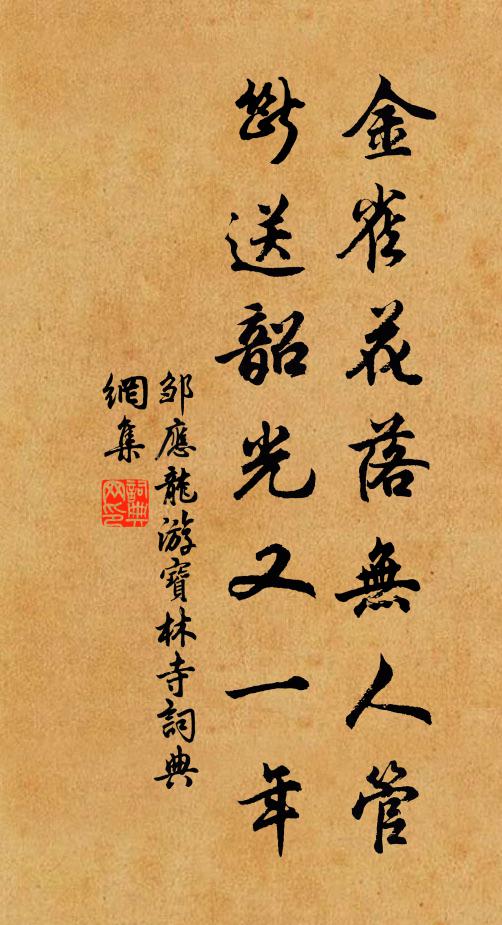 金雀花落無人管
斷送韶光又一年
邹應龍游寶林寺詞典
網集
詞典
网印